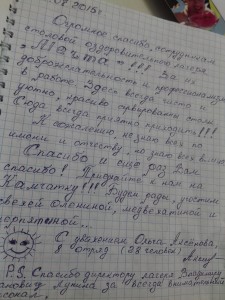 2015г
Огромное спасибо сотрудникам
столовой оздоровительного лагеря
"Мечта"!!! За их
доброжелательность и
в работе. Здесь всегда чисто и
уютно, красиво сервированы столы
Сюда всегда приятно приходить!!!
К сожалению, не знаю всех по
имени и отчеству, но знаю всех в
Спасибо и еще раз Вам
спасибо! Приезжайте к нам на
Камчатку!!! Будем рады, угостим
свежей олениной, медвежатиной и
С уважением Ольга
8 отряд (28 человек)
P.S. Спасибо директору лагеря Владимиру
за всегда